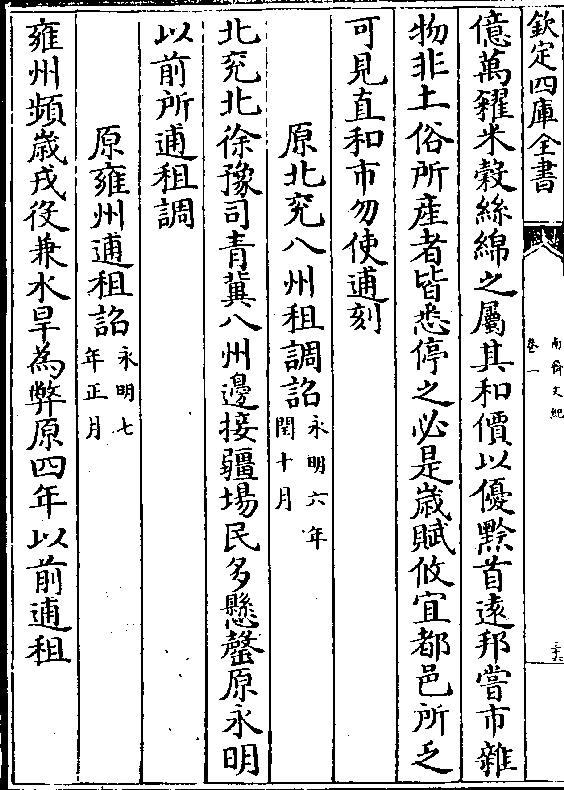 欽定四庫全書
南齊文紀
卷一
億萬糴米穀絲綿之屬其和價以優黔首遠邦嘗市雜
物非土俗所産者皆悉停之必是歲賦攸宜都邑所乏
可見直和市勿使逋刻
原北兖八州租調詔永明六年
閏十月
北兖北徐豫司青冀八州邊接疆場民多懸罄原永明
以前所逋租調
原雍州逋租詔永明七
年正月
雍州頻歲戎役兼水旱為弊原四年以前逋租